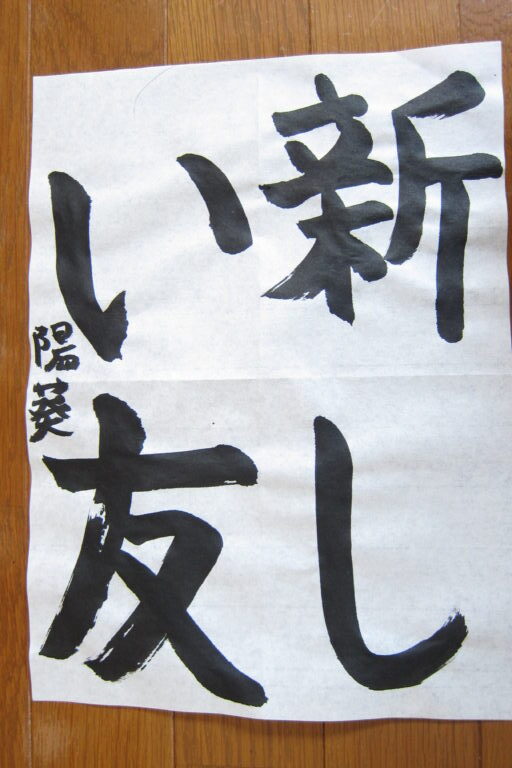 新し
い友
陽葵